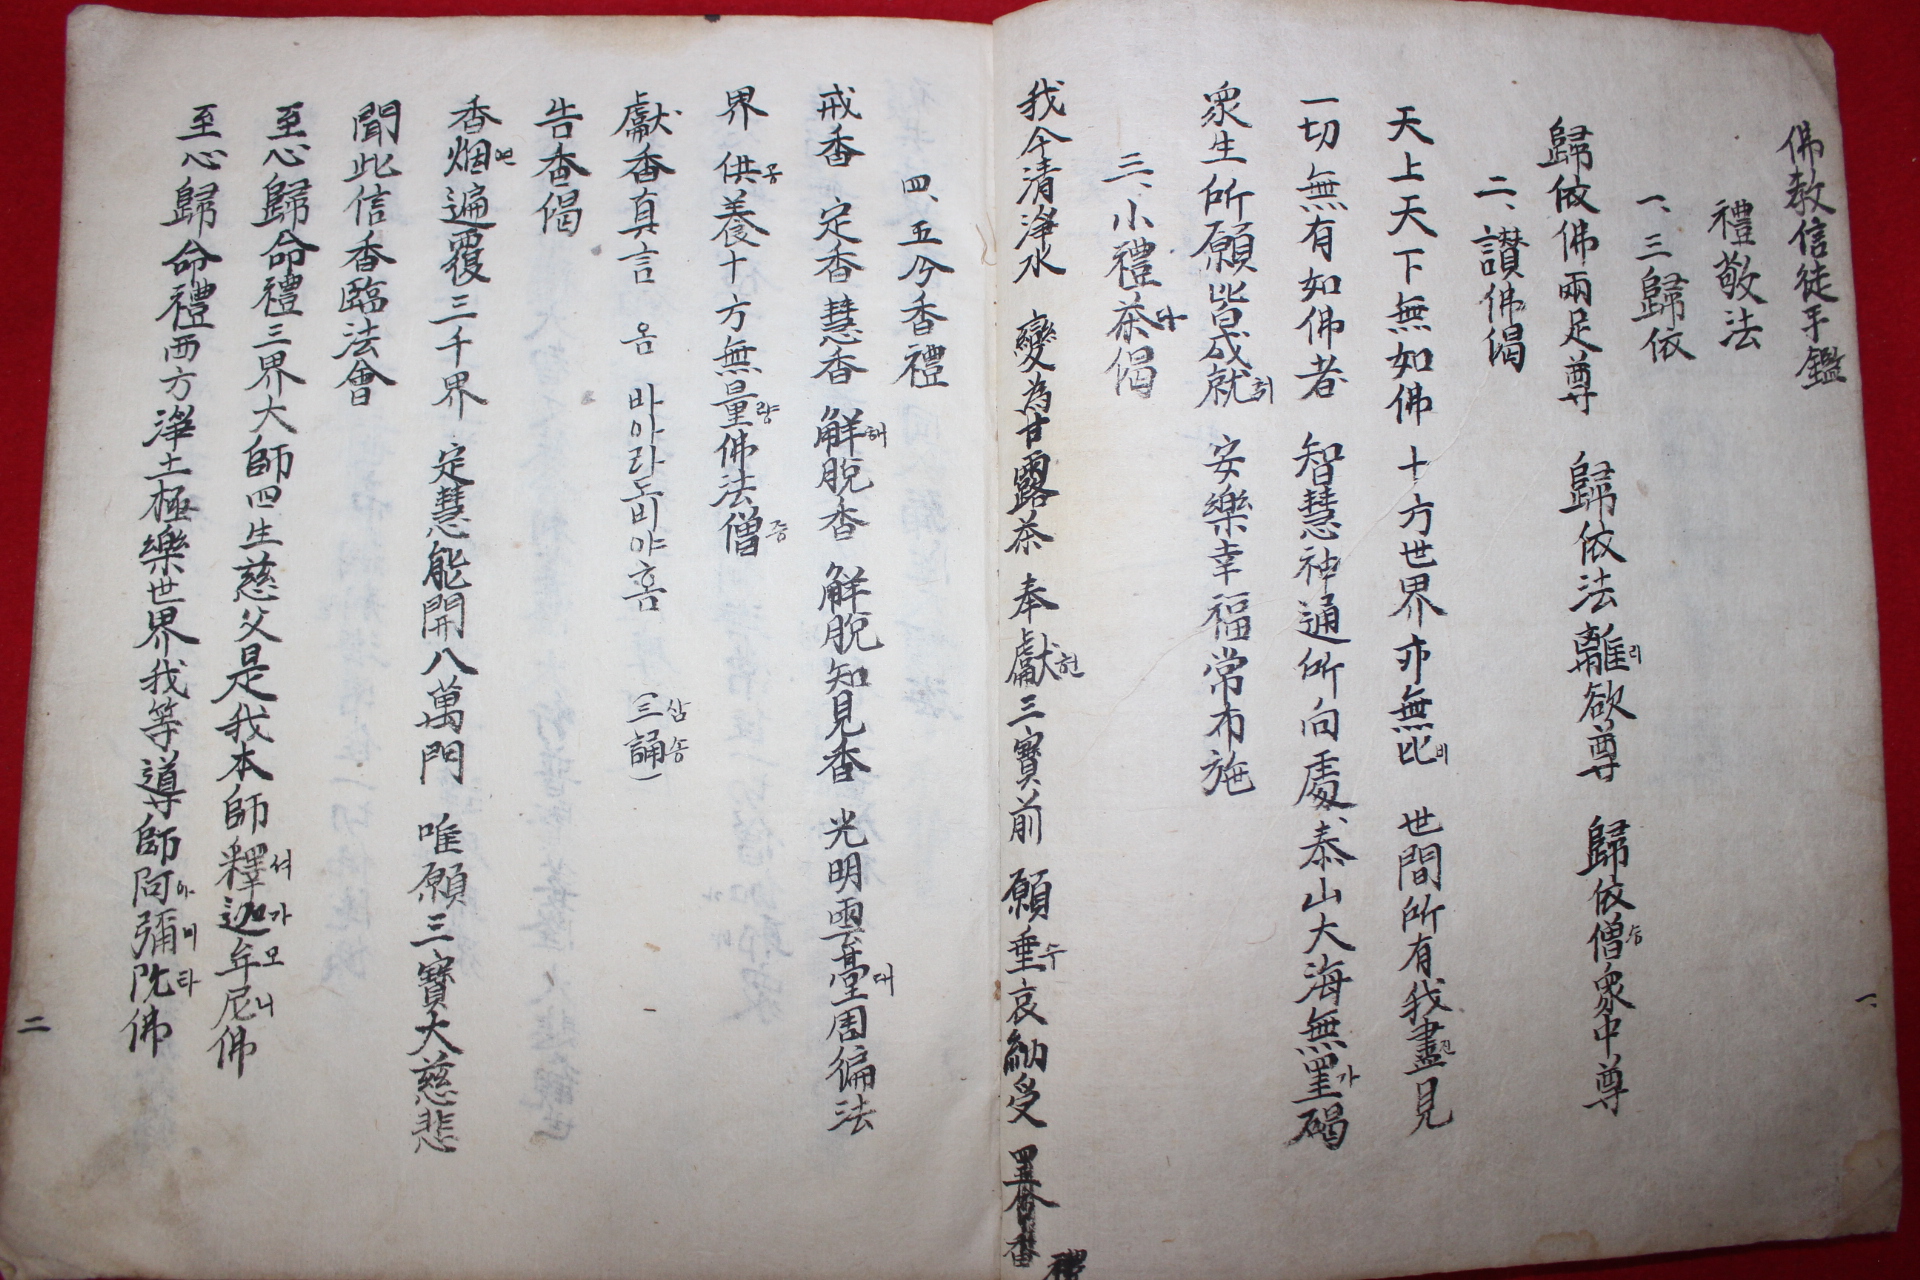 佛教信徒手鑑
禮敬法
一、三歸依
歸依佛兩足尊 歸依法離리欲尊 歸依僧승衆中尊
二、讃佛偈
天上天下無如佛 十方世界亦無比비 世間所有我盡진見
一切無有如佛者 智慧神通所向處、泰山大海無罣가碍
衆生所願皆成就취 安樂幸福常布施
三、小禮茶다偈
我今清淨水 變為甘露茶 奉獻헌三寶前 願垂수哀納受
一、
四、五分香禮
戒香 定香 慧香 解해脫香 解脫知見香 光明雲臺대周徧法
界 供공養十方無量량佛法僧승
獻香真言 옴 바아라도비야훔 (三삼誦송)
告香偈
香烟연遍覆三千界 定慧能開八萬門 唯願三寶大慈悲
聞此信香臨法會
至心歸命禮三界大師四生慈父是我本師釋석迦가牟모尼니佛
至心歸命禮西方淨土極樂世界我等導師阿아彌미陀타佛
二